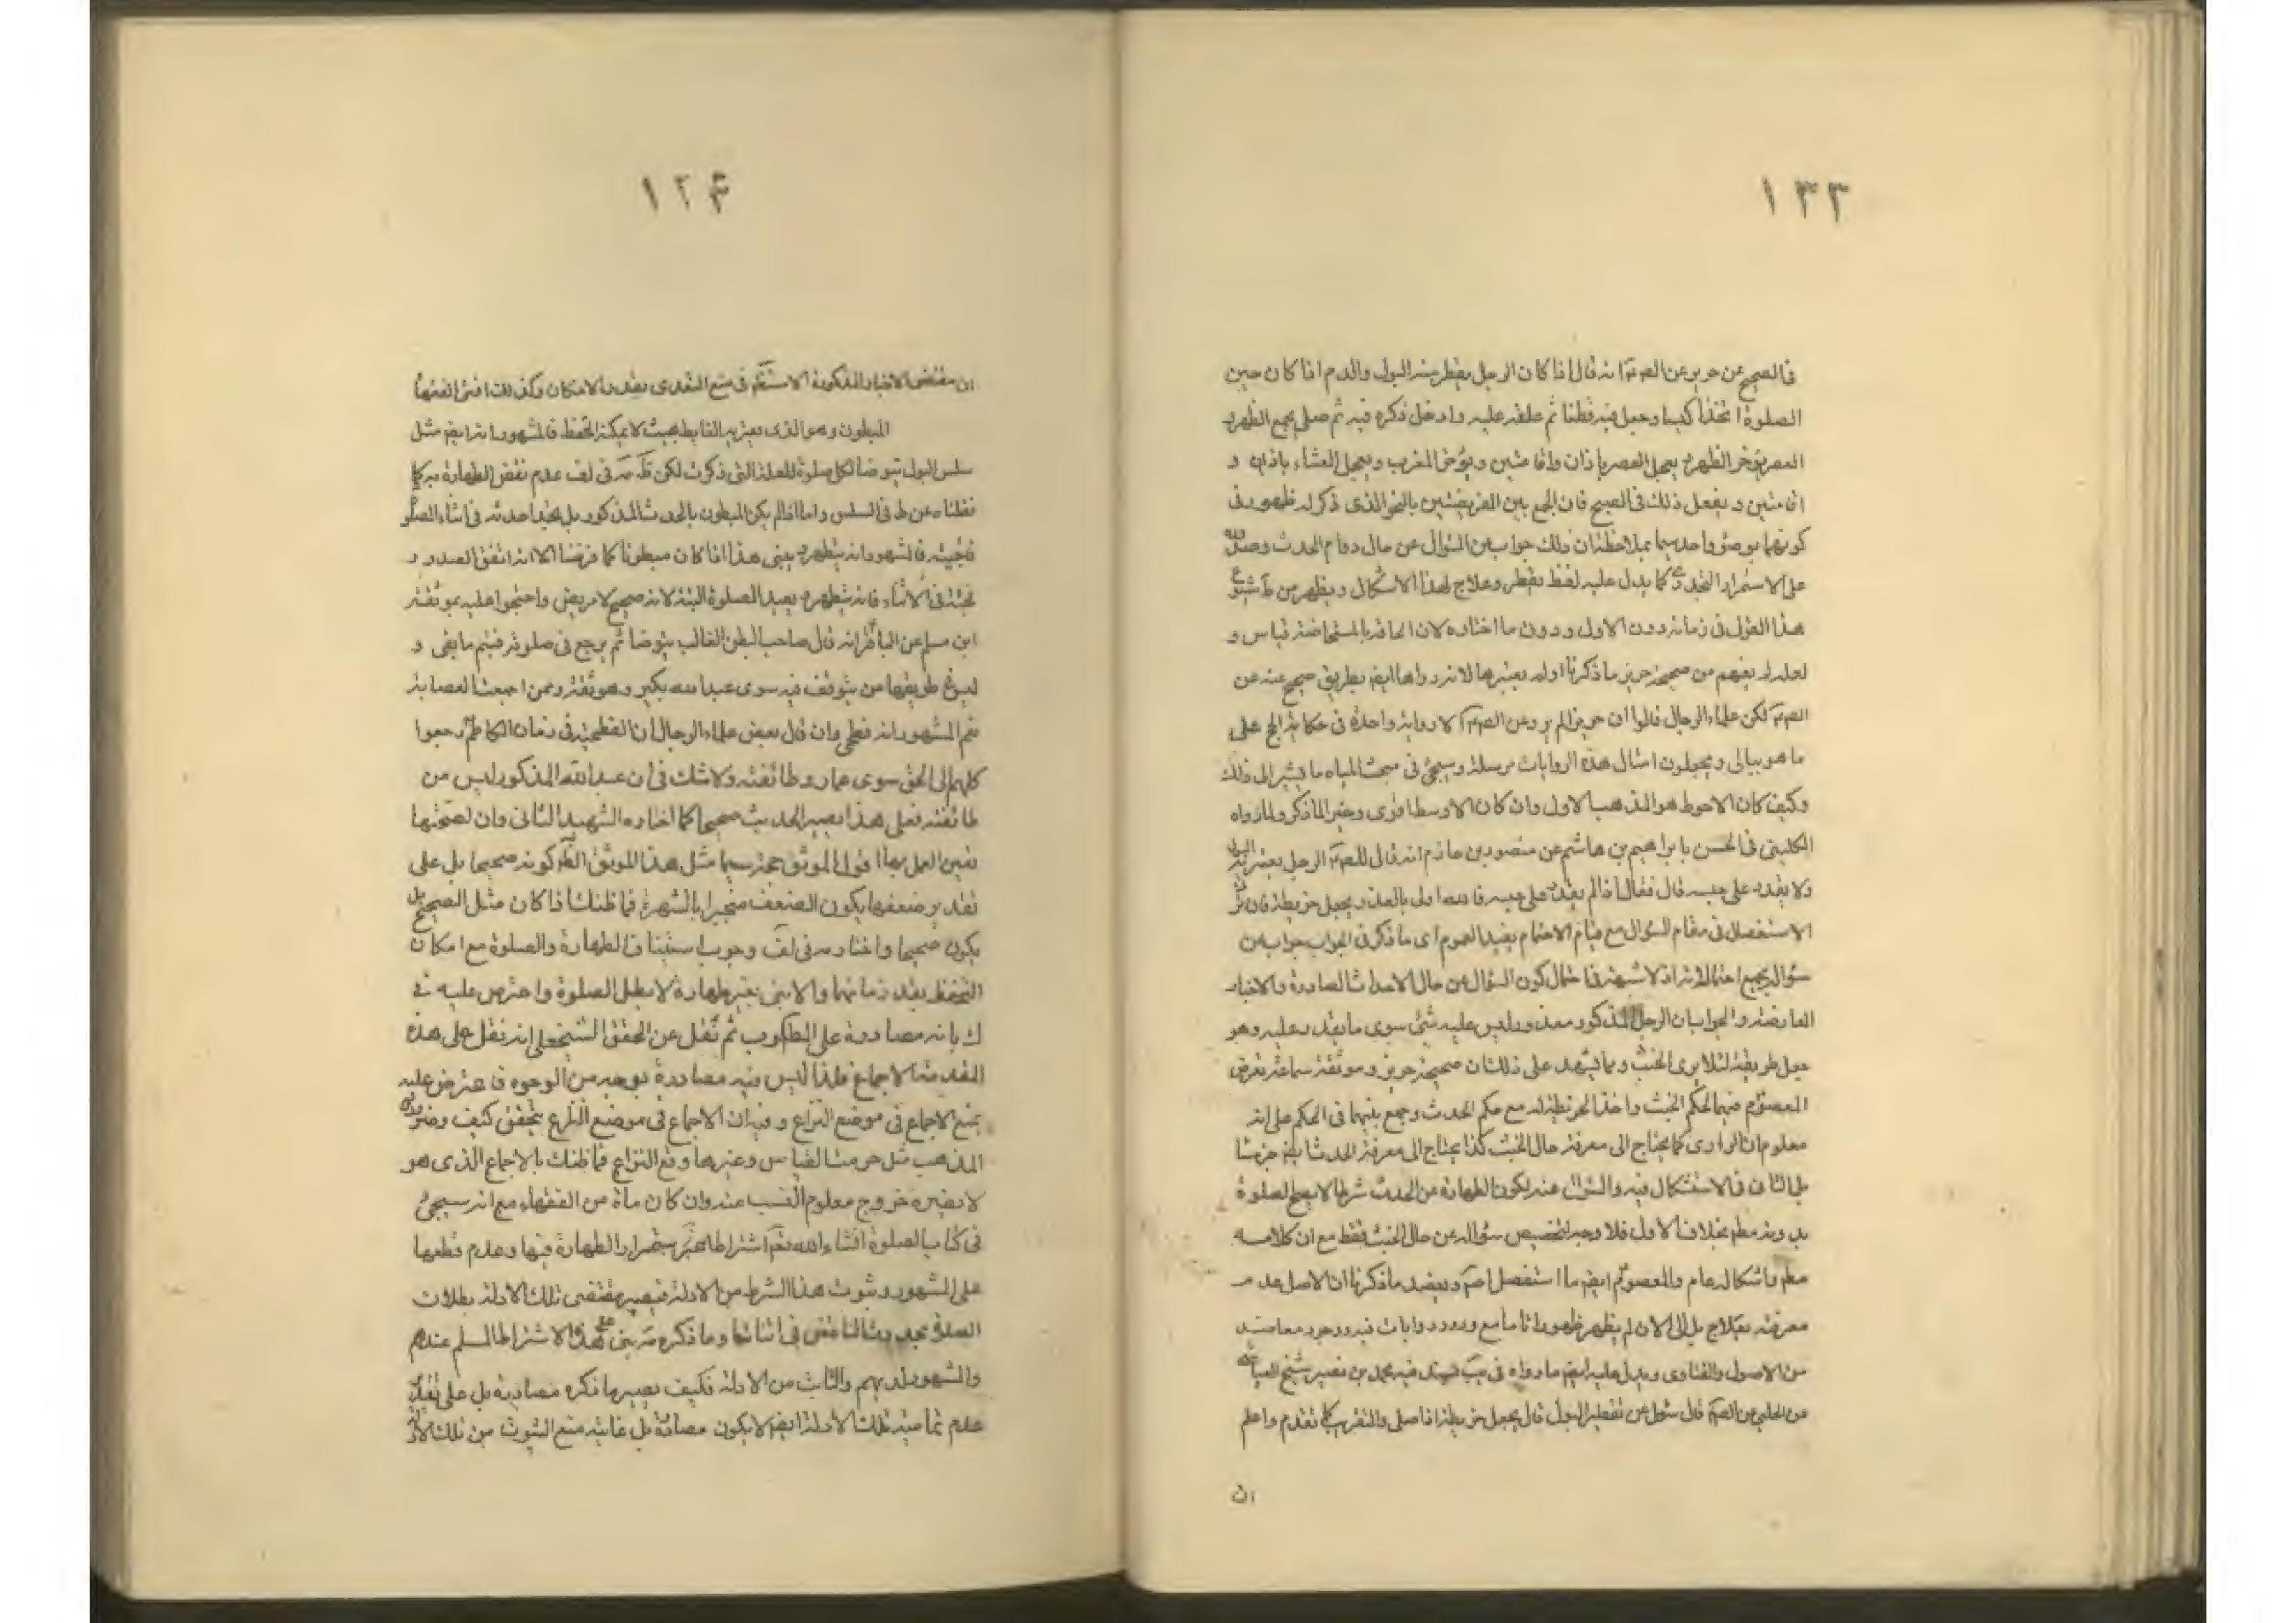 ١٣٣
فى الصحيح عن حريز عن الصم انه قال اذا كان الرجل يقطر منه البول والدم اذا كان حين
الصلوة اتخذ كيسا وجعل فيه قطنا ثم علقه عليه وادخل ذكره فيه ثم صلى يجمع الظهر و
العصر يؤخر الظهر و يعجل العصر باذان واقامتين ويؤخر المغرب ويعجل العشاء باذان و
اقامتين ويفعل ذلك فى الصبح فان الجمع بين الفريضتين بالنحو الذى ذكر له ظهور فى
كونهما بوضوء واحد سيما بملاحظة ان ذلك جواب عن السؤال عن حال دوام الحدث
على الاستمرار كما يدل عليه لفظ يقطر وعلاج لهذا الاشكال ويظهر من
هذا القول فى زمانه دون الاول ودون ما اختاره لان الحاقه بالمستحاضة قياس و
لعله لم يفهم من صحيحة حريز ما ذكرنا او لم يعتبرها لانه رواها ايضا بطريق صحيح عنه عن
الصم لكن علماء الرجال قالوا ان حريز لم يرو عن الصم الا رواية واحدة فى حكاية الحج على
ما هو ببالى ويجعلون امثال هذه الروايات مرسلة وسيجئ فى مبحث المياه ما يشير الى ذلك
وكيف كان الاحوط هو المذهب الاول وان كان الاوسط اقوى وخير لما ذكر ولما رواه
الكلينى فى الحسن بابراهيم بن هاشم عن منصور بن حازم انه قال للصم الرجل يعتريه البول
ولا يقدر على حبسه قال فقال اذا لم يقدر على حبسه فالله اولى بالعذر ويجعل خريطة فان ترك
الاستفصال فى مقام السؤال مع قيام الاحتمام يفيد العموم اى ما ذكر فى الجواب جواب عن
سؤال يجمع احتمالاته اذ لا شبهة فى احتمال كون السؤال عن حال الاحداث الصادرة والاخبار
العارضة والجواب بان الرجل المذكور معذور وليس عليه شئ سوى ما يقدر عليه وهو
جعل خريطة لئلا يرى الخبث ومما يشهد على ذلك ان صحيحة حريز وموثقة سماعة تعرض
المعصوم فيهما لحكم الخبث واخذ الخريطة له مع حكم الحدث وجمع بينهما فى الحكم على انه
معلوم ان الراوى كما يحتاج الى معرفة حال الخبث كذا يحتاج الى معرفة الحدث ايضا جزما
بل الثانى فالاستشكال فيه والسؤال عنه لكون الطهارة من الحدث شرطا لا يصح الصلوة
بدونه مطم بخلاف الاول فلا وجه لتخصيص سؤاله عن حال الخبث فقط مع ان كلامه
مطم واشكاله عام والمعصوم ايضا ما استفصل اصم ويعضد ما ذكرنا ان الاصل عدم
معرفته بعلاج بل الى الان لم يظهر ظهورا تاما مع ورود روايات فيه ووجود معاضد
من الاصول والفتاوى ويدل عليه ايضا ما رواه فى يب بسند فيه محمد بن نصير شيخ
عن الحلبى عن الصم قال سئل عن تقطير البول قال يجعل خريطة اذا صلى والتقريب كما تقدم واعلم
ان
١٣۴
ان مقتضى الاخبار المذكورة الاستظهار فى منع التعدى بقدر الامكان وكذلك افتى الفقهاء
المبطون وهو الذى يعتريه الغايط بحيث لا يمكنه التحفظ فالمشهور انه ايضا مثل
سلس البول يتوضأ لكل صلوة للعلة التى ذكرت لكن ظاهر مه فى لف عدم نقض الطهارة به كما
نقلناه عن ط فى السلس واما اذا لم يكن المبطون بالحدث المذكور بل يجئ حدثه فى اثناء الصلوة
فجيئه فالمشهور انه يتطهر و يبنى هذا اذا كان مبطونا كما فرضنا الا انه اتفق الصدور
بغتة فى الاثناء فانه يتطهر و يعيد الصلوة البتة لانه صحيح لا مريض واحتجوا عليه بموثقة
ابن مسلم عن الباقر انه قال صاحب البطن الغالب يتوضأ ثم يرجع فى صلوته فيتم ما بقى و
ليس فى طريقها من يتوقف فيه سوى عبد الله بكير وهو ثقة وممن اجمعت العصابة
نعم المشهور انه فطحى وان قال بعض علماء الرجال ان الفطحية فى زمان الكاظم رجعوا
كلهم الى الحق سوى عمار وطائفته ولا شك فى ان عبد الله المذكور ليس من
طائفته فعلى هذا يصير الحديث صحيحا كما اختاره الشهيد الثانى وان لصحتها
تعين العمل بها اقول الموثق حجة سيما مثل هذا الموثق الظاهر كونه صحيحا بل على
تقدير ضعفها يكون الضعف منجبرا بالشهرة فما ظنك اذا كان مثل الصحيح بل
يكون صحيحا واختار مه فى لف وجوب استيناف الطهارة والصلوة مع امكان
التحفظ بقدر زمانهما والا بنى بغير طهارة لا يبطل الصلوة واعترض عليه فى
ك بانه مصادرة على المطلوب ثم نقل عن المحقق الشيخ على انه نقل على هذه
المقدمة الاجماع فلذا ليس فيه مصادرة بوجه من الوجوه فاعترض عليه
بمنع الاجماع فى موضع النزاع وفيه ان الاجماع فى موضع النزاع يتحقق كيف وضرورى
المذهب مثل حرمة القياس وغيرها وقع النزاع فما ظنك بالاجماع الذى هو
لا يضره خروج معلوم النسب عنه وان كان مأة من الفقهاء مع انه سيجئ
فى كتاب الصلوة انشاء الله تعم اشتراط استمرار الطهارة فيها وعدم قطعها
على المشهور وثبوت هذا الشرط من الادلة فيصير مقتضى تلك الادلة بطلان
الصلوة بحدوث الناقض فى اثنائها وما ذكره مه بنى على هذا الاشتراط المسلم عندهم
والمشهور لديهم والثابت من الادلة فكيف يصير ما ذكره مصادرة بل على تقدير
عدم تمامية تلك الادلة ايضا لا يكون مصادرة بل غايته منع الثبوت من تلك الادلة